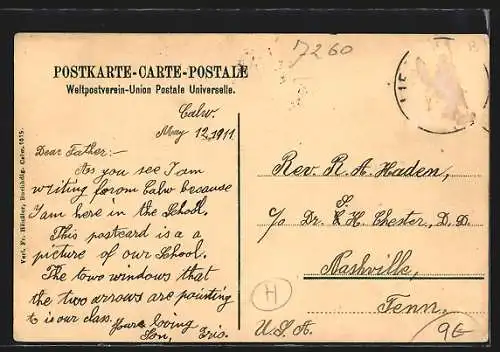 7260
POSTKARTE-CARTE-POSTALE
Weltpostverein-Union Postale Universelle.
Calw.
May 12, 1911.
Dear Father:-
As you see I am
writing forom Calw because
I am here in the School.
This postcard is a a
picture of our School.
The towo windows that
the two arrows are pointing
to is our class.
Your loving
Son,
Rev. R. A. Haden,
c/o Dr. S. H. Chester, D. D.
Nashville,
Tenn.
U.S.A.
H
Verl. Fr. Häußler, Buchhdlg. Calw. 1915.